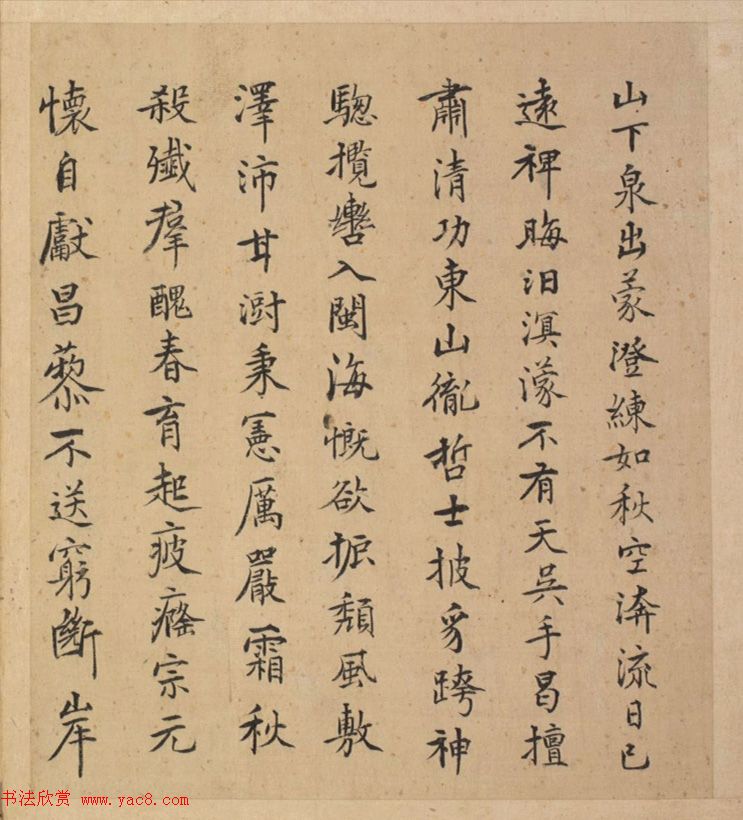 山下泉出蒙澄練如秋空渀流日已
遠裨晦汩溟濛不有天吳手曷擅
肅清功東山胤哲士披豸跨神
驄攬轡入閩海慨欲振頹風敷
澤沛甘澍秉憲厲嚴霜秋
殺殲羣醜春育起疲癃宗元
懷自獻昌藜不送窮斷岸
书法欣赏 www.yac8.com